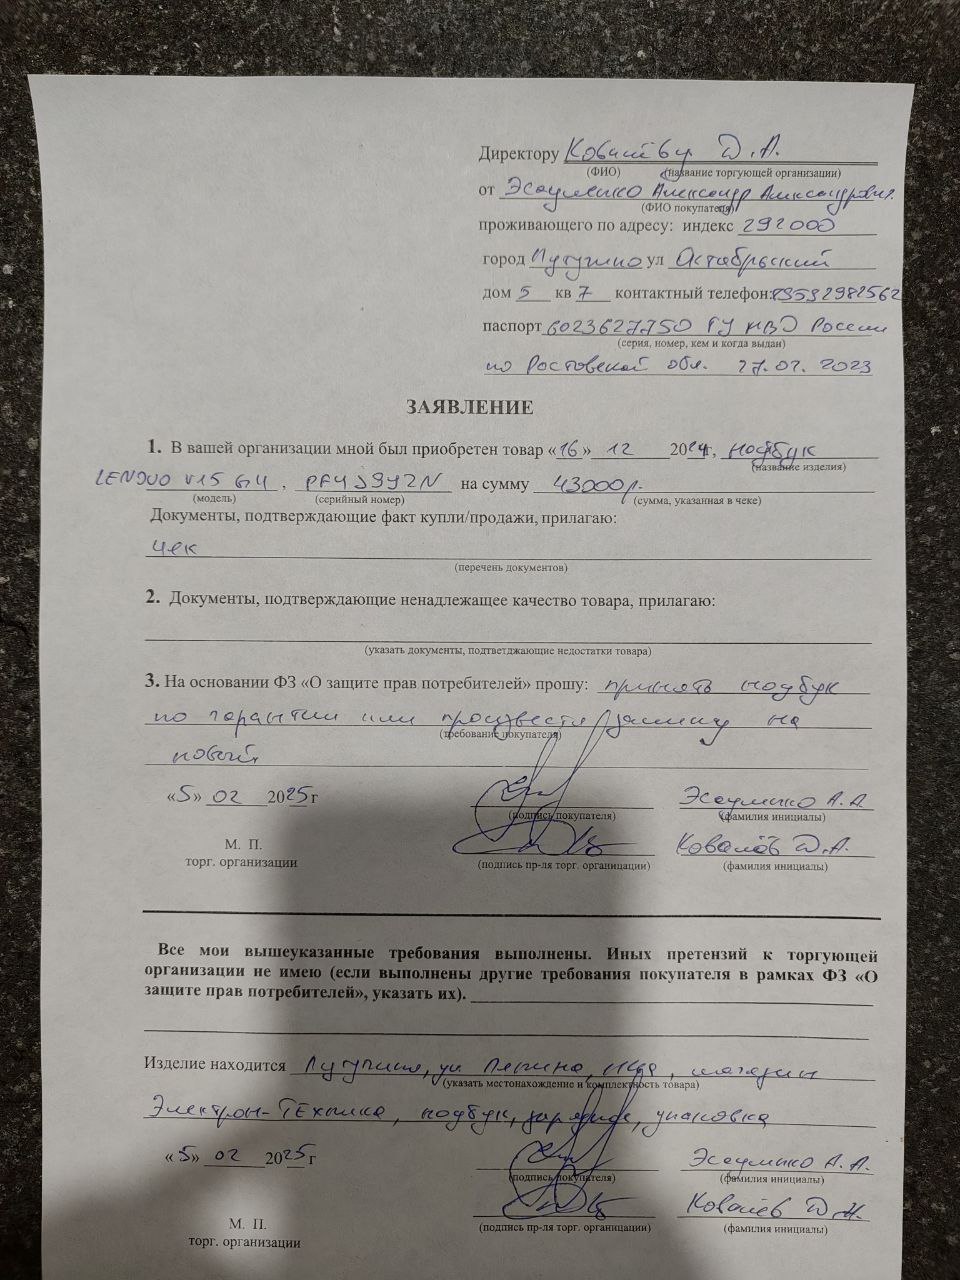 Директору Ковалёву Д.А.
(ФИО) (название торгующей организации)
от Эсауленко Александр Александрович.
(ФИО покупателя)
проживающего по адресу: индекс 292000
город Лутугино ул Октябрьский
дом 5 кв 7 контактный телефон: 89592982562
паспорт 6023627750 ГУ МВД России
(серия, номер, кем и когда выдан)
по Ростовской обл. 27.02.2023
ЗАЯВЛЕНИЕ
1. В вашей организации мной был приобретен товар «16» 12 2024г, ноутбук
(название изделия)
LENOVO V15 G4, PF4J9YZN на сумму 43000р.
(модель) (серийный номер) (сумма, указанная в чеке)
Документы, подтверждающие факт купли/продажи, прилагаю:
чек
(перечень документов)
2. Документы, подтверждающие ненадлежащее качество товара, прилагаю:
(указать документы, подтветджающие недостатки товара)
3. На основании ФЗ «О защите прав потребителей» прошу: принять ноутбук
по гарантии или произвести замену на
(требование покупателя)
новый.
«5» 02 2025г
(подпись покупателя)
Эсауленко А.А.
(фамилия инициалы)
М. П.
торг. организации
(подпись пр-ля торг. органицации)
Ковалёв Д.А.
(фамилия инициалы)
Все мои вышеуказанные требования выполнены. Иных претензий к торгующей
организации не имею (если выполнены другие требования покупателя в рамках ФЗ «О
защите прав потребителей», указать их).
Изделие находится Лутугино, ул Ленина, магазин
(указать местонахождение и комплектность товара)
Электрон-Техника, ноутбук, зарядное, упаковка
«5» 02 2025г
(подпись покупателя)
Эсауленко А.А.
(фамилия инициалы)
М. П.
торг. организации
(подпись пр-ля торг. органицации)
Ковалёв Д.А.
(фамилия инициалы)